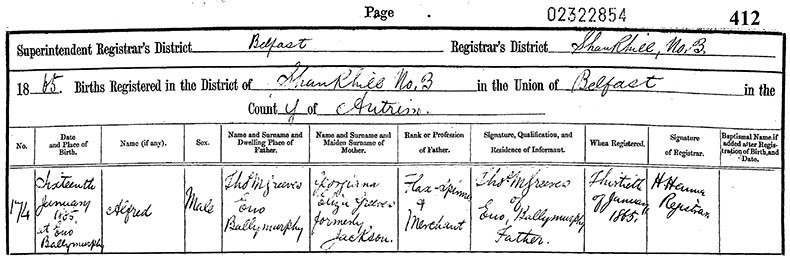 Page 02322854 412
Superintendent Registrar's District Belfast Registrar's District Shankhill, No. 3.
18 65. Births Registered in the District of Shankhill No. 3 in the Union of Belfast in the
County of Antrim.
No.
Date
and Place of
Birth.
Name (if any).
Sex.
Name and Surname and
Dwelling Place of
Father.
Name and Surname and
Maiden Surname of
Mother.
Rank or Profession
of Father.
Signature, Qualification, and
Residence of Informant.
When Registered.
Signature
of Registrar.
Baptismal Name, if
added after Regis-
tration of Birth, and
Date.
174
Sixteenth
January
1865.
at Eno
Ballymurphy
Alfred
Male
Thos M Greeves
Eno
Ballymurphy
Georgiana
Eliza Greeves
formerly
Jackson.
Flax-spinner
&
Merchant
Thos M Greeves
of
Eno, Ballymurphy
Father.
Thirtieth
of January
1865.
H Hanna
Registrar